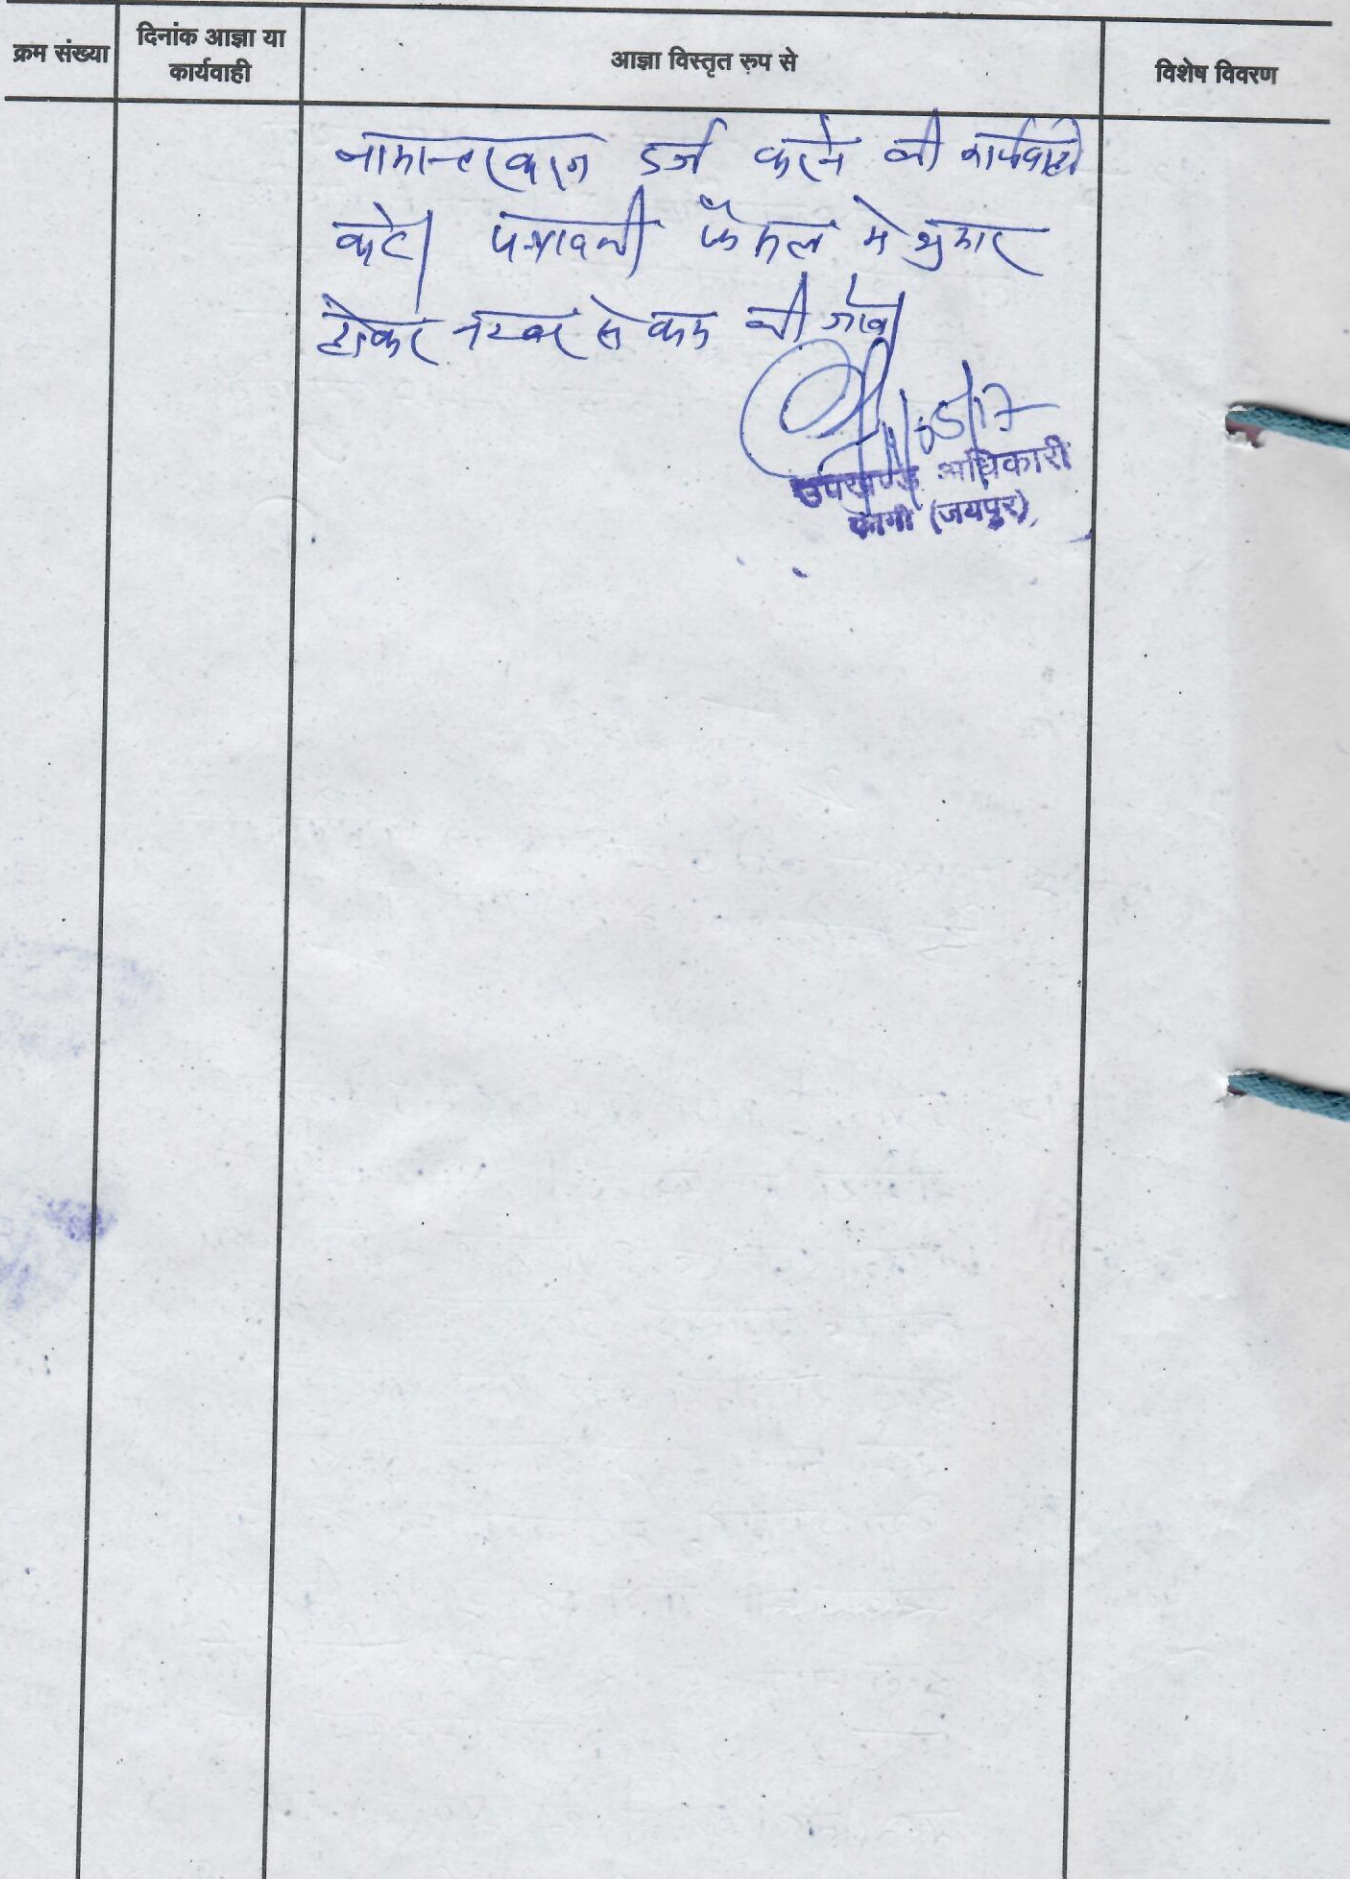 क्रम संख्या
दिनांक आज्ञा या
कार्यवाही
आज्ञा विस्तृत रुप से
विशेष विवरण
नामान्तरकरण दर्ज करने की कार्यवाही
करे। पत्रावली फैसल मे शुमार
होकर नम्बर से कम की जावे।
/05/17
उपखण्ड अधिकारी
फागी (जयपुर)